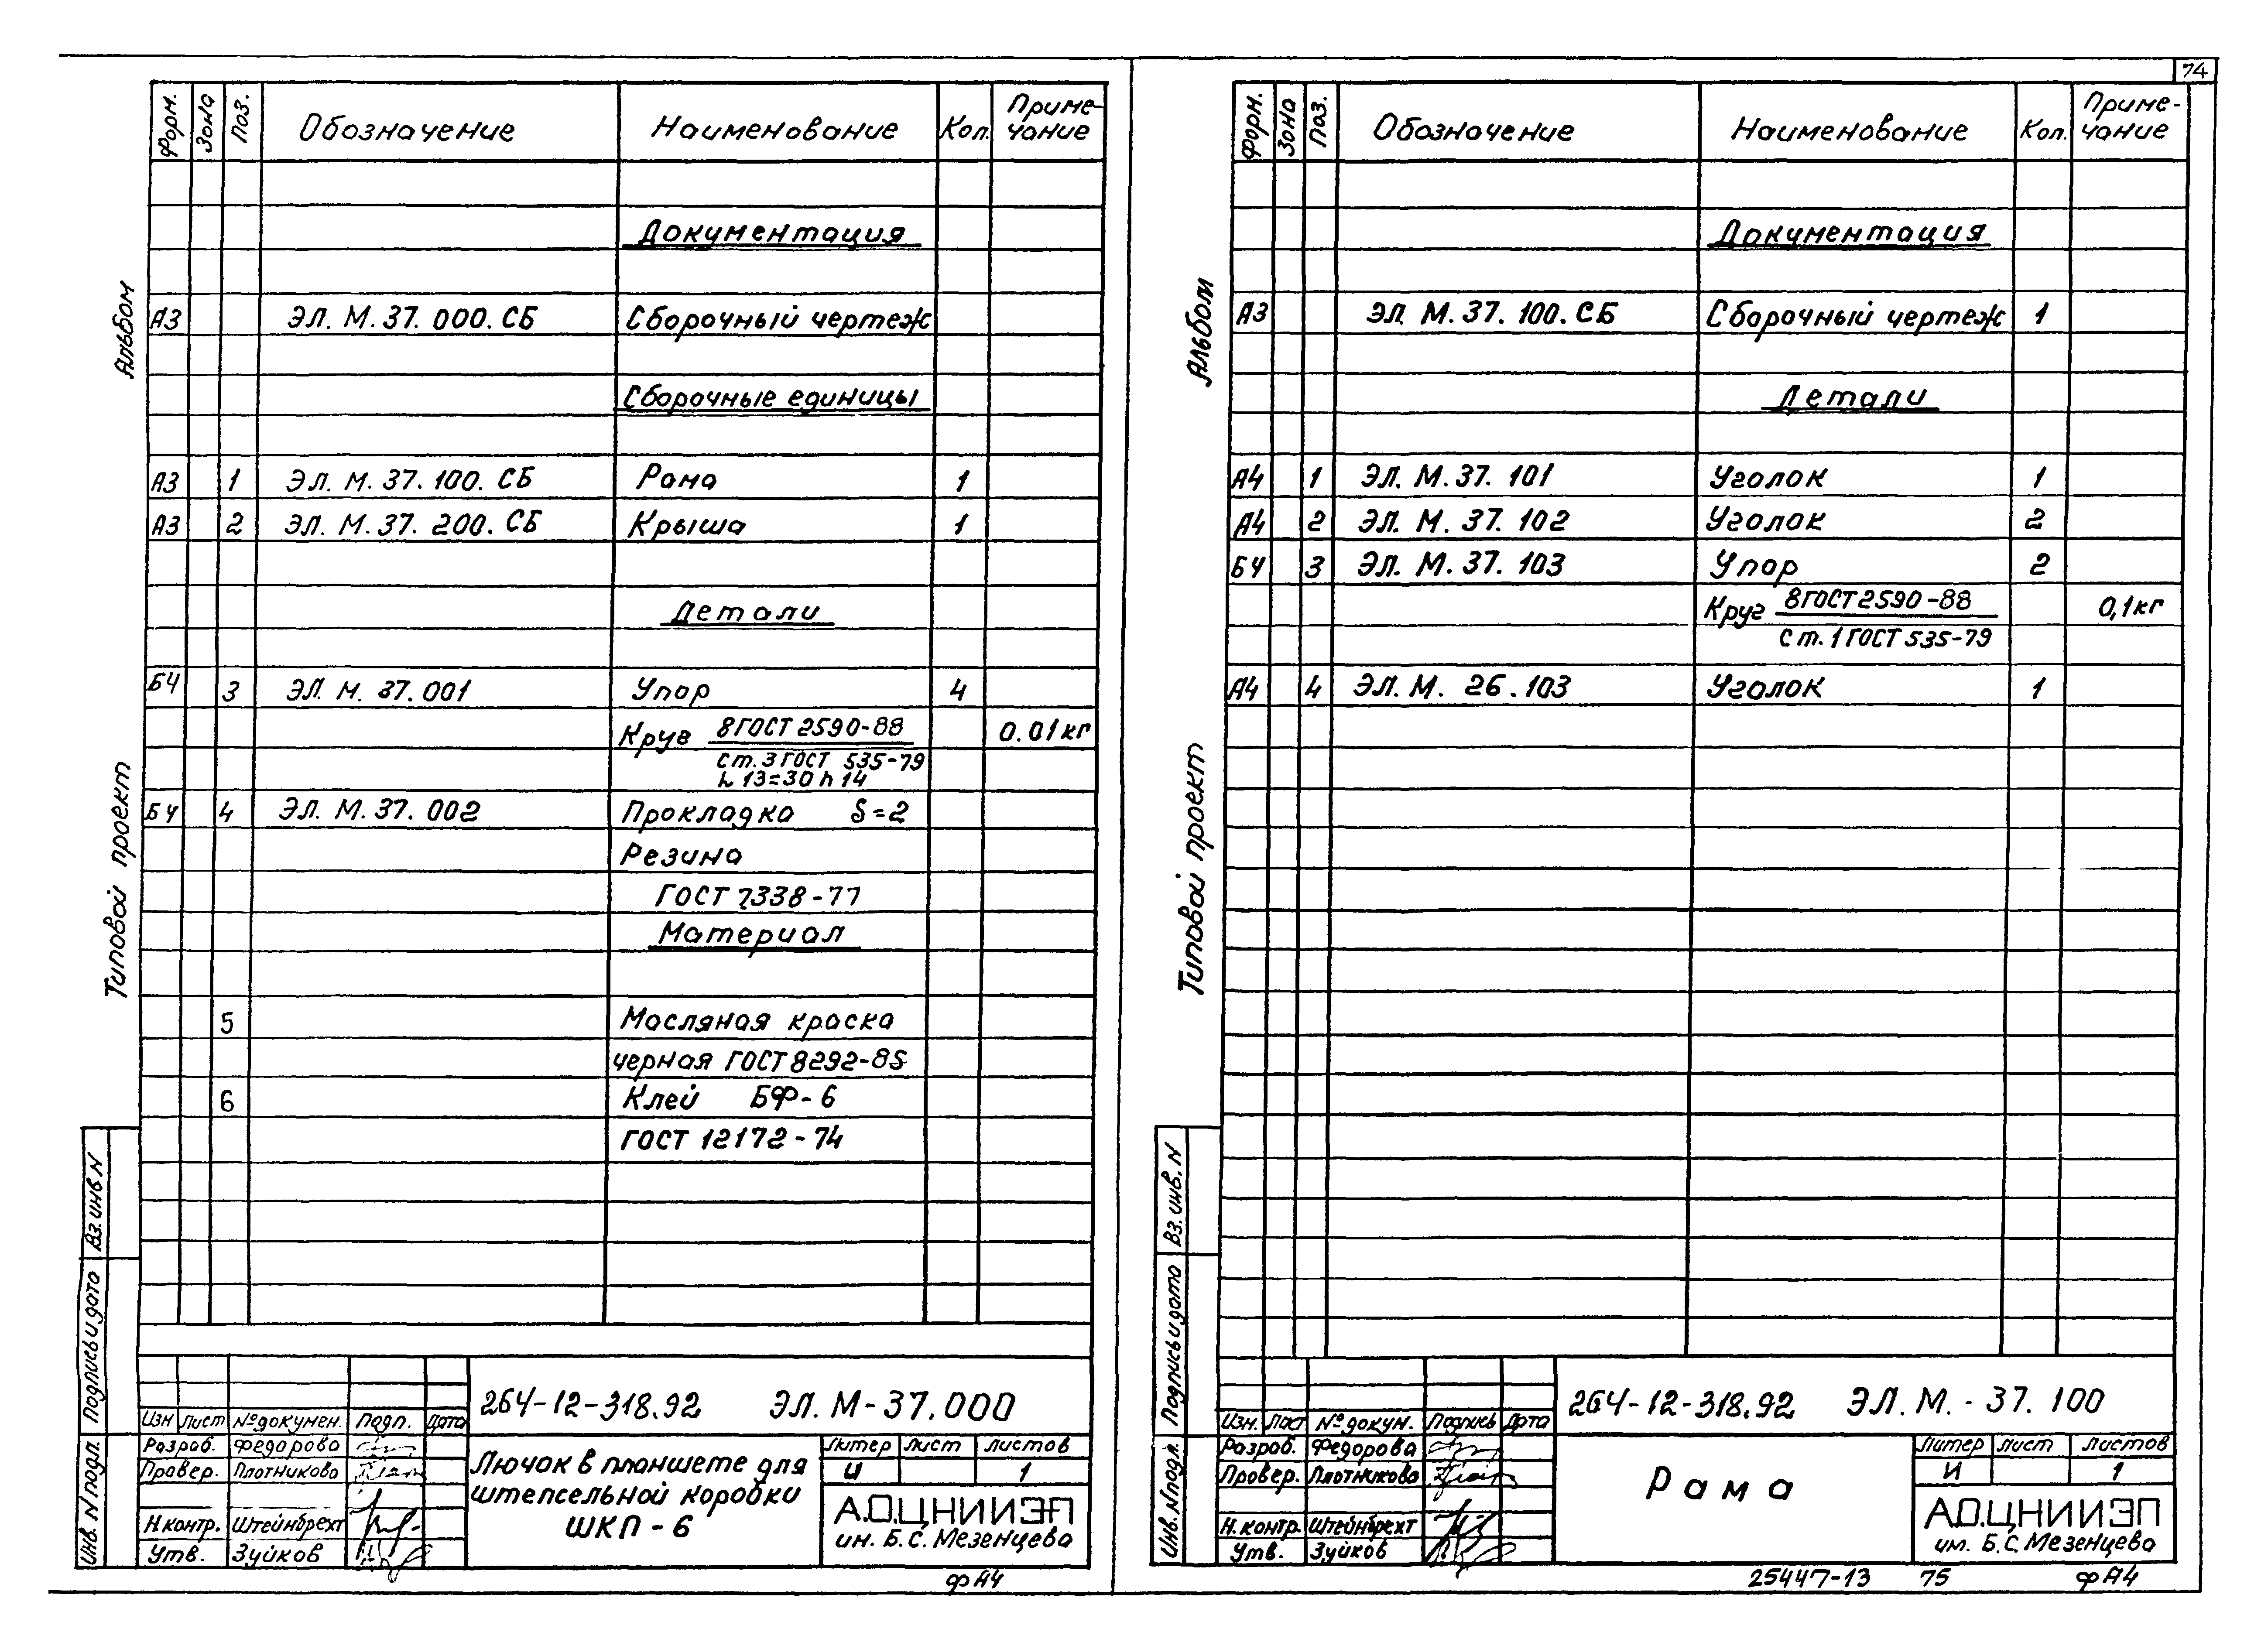 74
Форм. Зона Поз. Обозначение Наименование Кол. Приме-
чание
Документация
А3 ЭЛ. М. 37. 000. СБ Сборочный чертеж
Сборочные единицы
А3 1 ЭЛ. М. 37. 100. СБ Рама 1
А3 2 ЭЛ. М. 37. 200. СБ Крыша 1
Детали
БЧ 3 ЭЛ. М. 37. 001 Упор 4
Круг 8 ГОСТ 2590-88 0.01 кг
Ст. 3 ГОСТ 535-79
L 13=30 h 14
БЧ 4 ЭЛ. М. 37. 002 Прокладка S=2
Резина
ГОСТ 7338-77
Материал
5 Масляная краска
черная ГОСТ 8292-85
6 Клей БФ-6
ГОСТ 12172-74
Альбом
Типовой проект
Вз. инв N
Подпись и дата
Инв. N подл.
264-12-318.92 ЭЛ. М-37.000
Изм Лист № докумен. Подп. Дата
Разраб. Федорова
Провер. Плотникова
Н.контр. Штейнбрехт
Утв. Зуйков
Лючок в планшете для
штепсельной коробки
ШКП-6
Литер Лист Листов
И 1
А.О.ЦНИИЭП
им. Б.С. Мезенцева
ф А4
Форм. Зона Поз. Обозначение Наименование Кол. Приме-
чание
Документация
А3 ЭЛ. М. 37. 100. СБ Сборочный чертеж 1
Детали
А4 1 ЭЛ. М. 37. 101 Уголок 1
А4 2 ЭЛ. М. 37. 102 Уголок 2
БЧ 3 ЭЛ. М. 37. 103 Упор 2
Круг 8 ГОСТ 2590-88 0,1 кг
Ст. 1 ГОСТ 535-79
А4 4 ЭЛ. М. 26. 103 Уголок 1
Альбом
Типовой проект
Вз. инв. N
Подпись и дата
Инв. N подл.
264-12-318.92 ЭЛ. М. - 37. 100
Изм. Лист № докум. Подпись Дата
Разраб. Федорова
Провер. Плотникова
Н.контр. Штейнбрехт
Утв. Зуйков
Рама
Литер Лист Листов
И 1
А.О.ЦНИИЭП
им. Б.С. Мезенцева
25447-13 75 ф А4